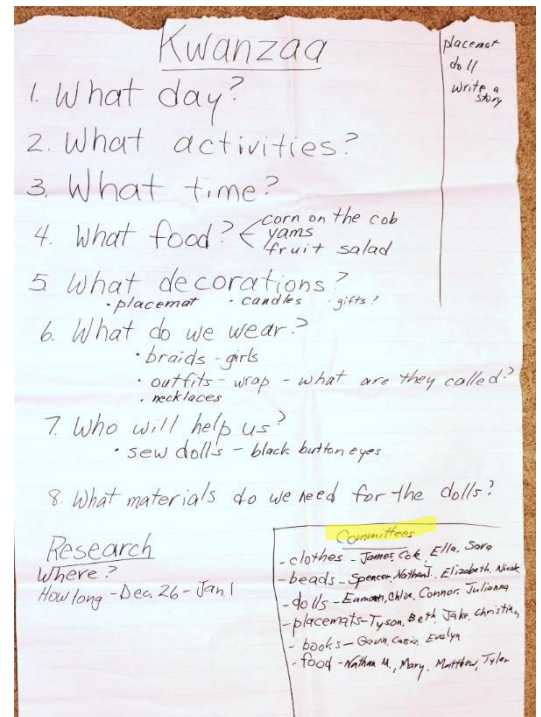 Kwanzaa
placemat
doll
write a
story
1. What day?
2. What activities?
3. What time?
4. What food? < corn on the cob
yams
fruit salad
5 What decorations?
• placemat • candles • gifts?
6. What do we wear?
• braids - girls
• outfits - wrap - what are they called?
• necklaces
7. Who will help us?
• sew dolls - black button eyes
8. What materials do we need for the dolls?
Research
Where?
How long - Dec. 26 - Jan 1
Committees
- clothes - James, Cole, Ella, Sara
- beads - Spencer, Nathan J., Elizabeth, Nicole
- dolls - Eamonn, Chloe, Connor, Julianna
- placemats - Tyson, Beth, Jake, Christian
- books - Cassie, Evelyn
- food - Nathan M., Mary, Matthew, Tyler